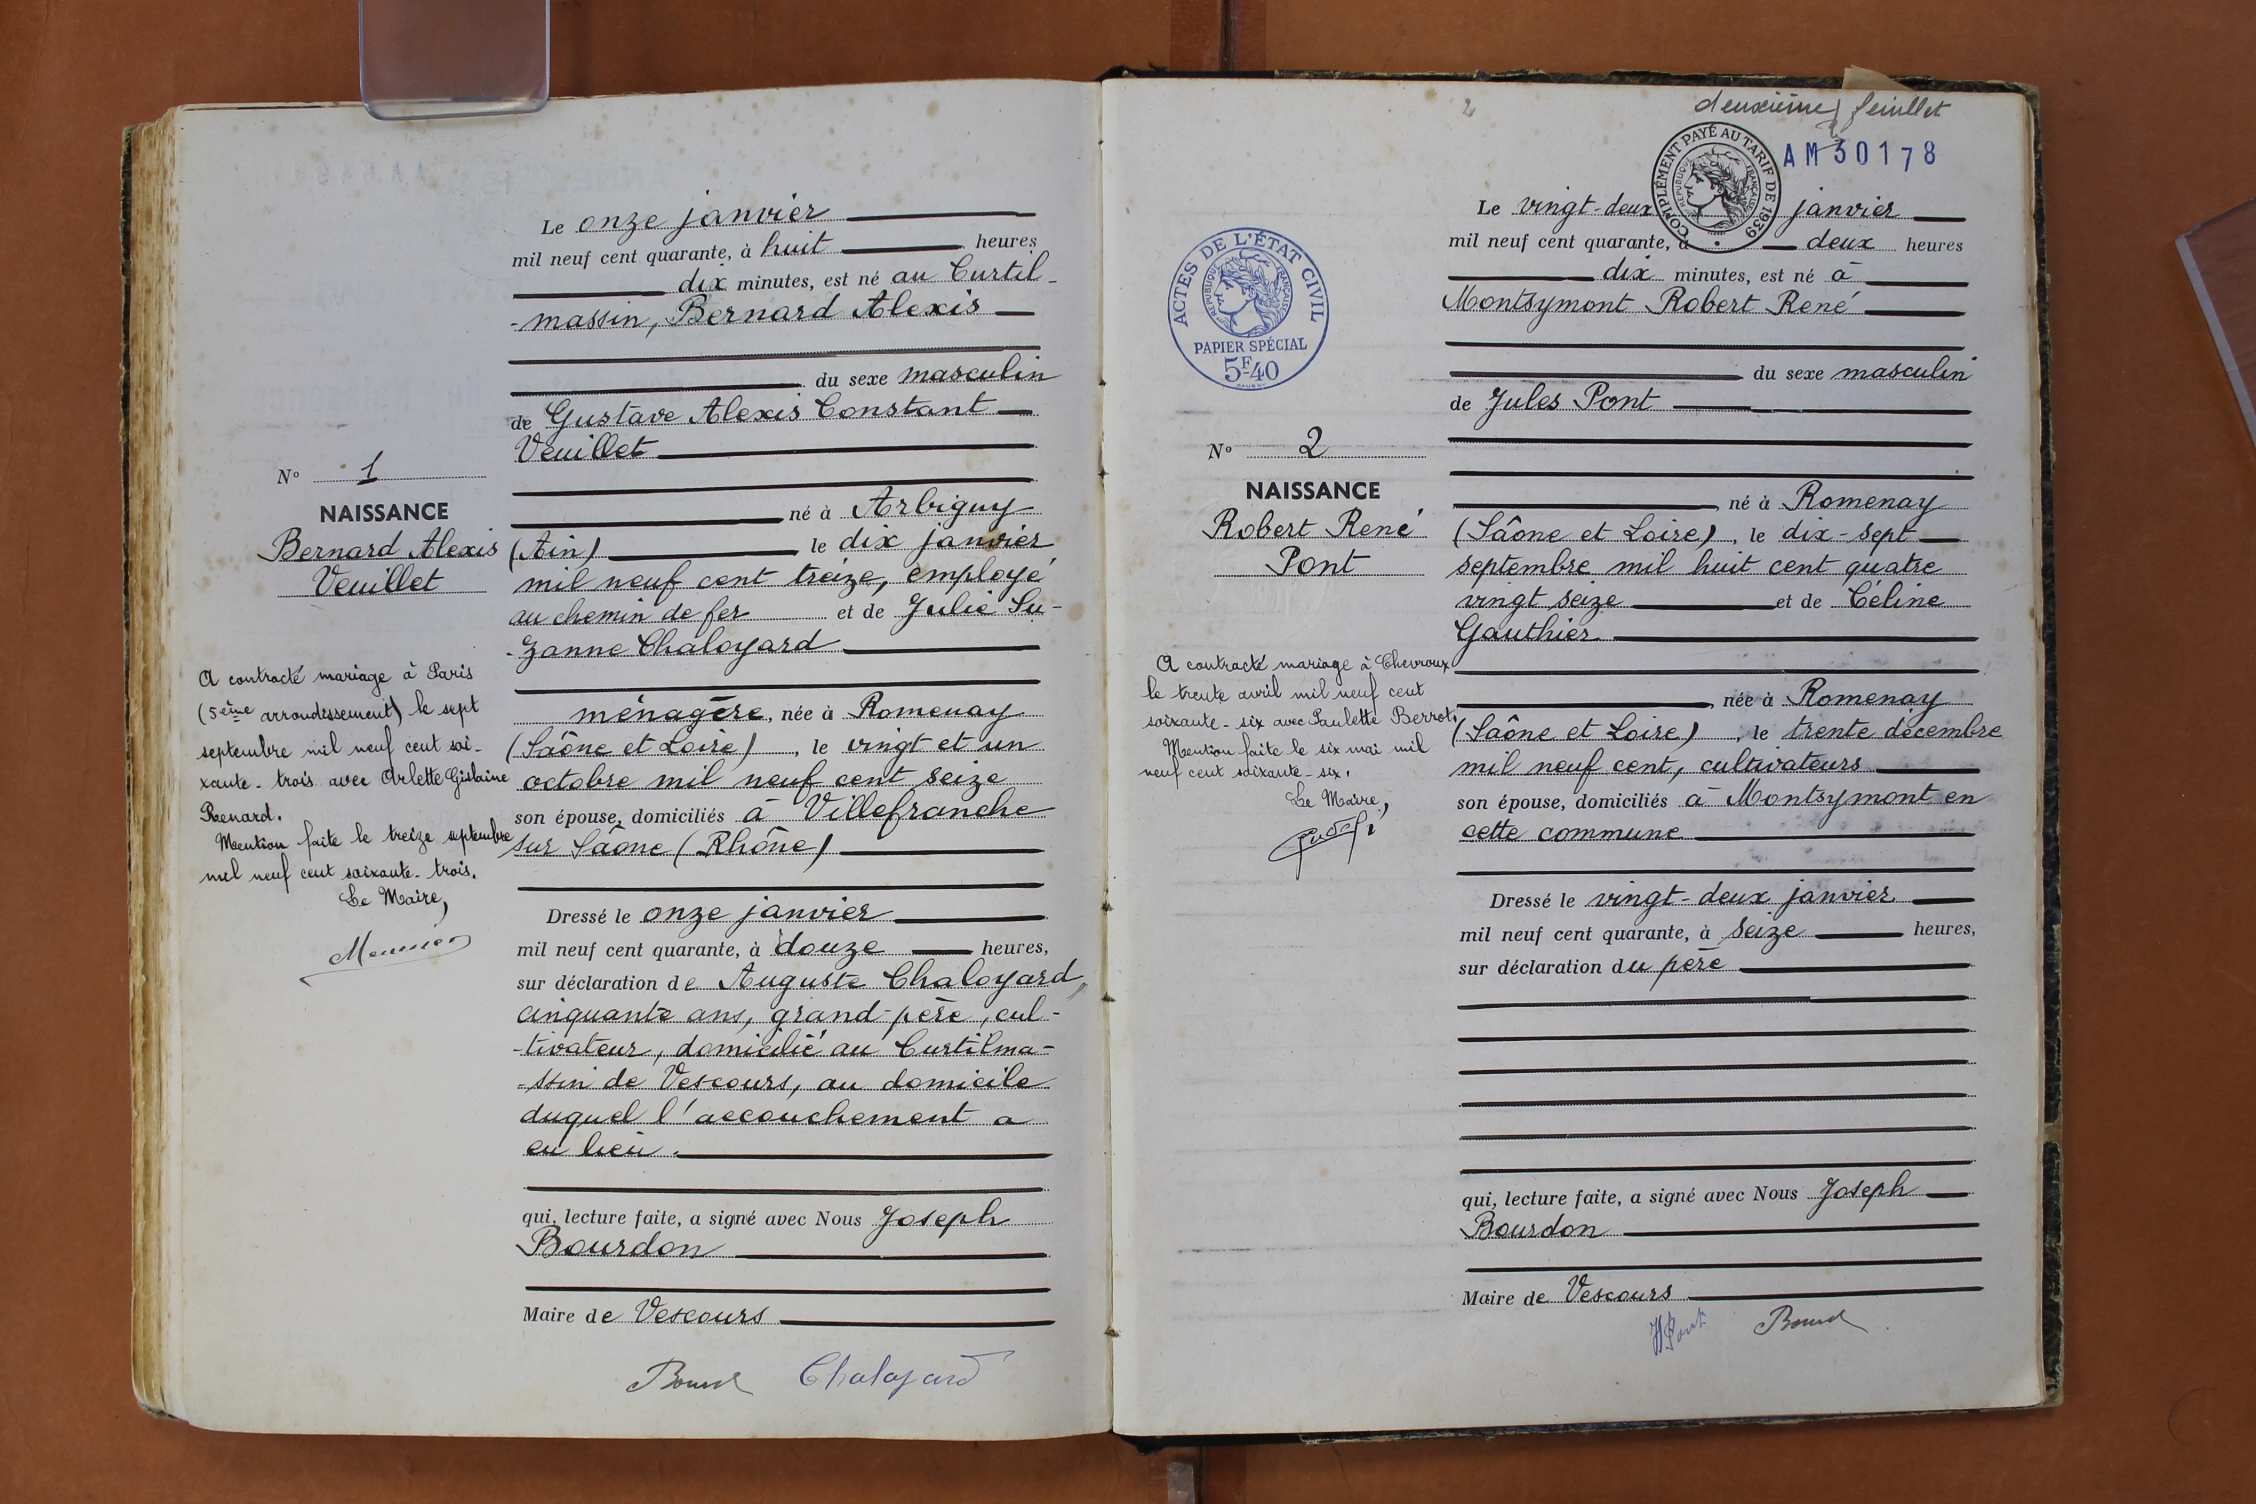 Le onze janvier
mil neuf cent quarante, à huit heures
dix minutes, est né au Curtil-
-massin, Bernard Alexis
du sexe masculin
de Gustave Alexis Constant
Veuillet
né à Arbigny
(Ain) le dix janvier
mil neuf cent treize, employé
au chemin de fer et de Julie Su-
-zanne Chaloyard
ménagère, née à Romenay
(Saône et Loire), le vingt et un
octobre mil neuf cent seize
son épouse, domiciliés à Villefranche
sur Saône (Rhône)
Dressé le onze janvier
mil neuf cent quarante, à douze heures,
sur déclaration de Auguste Chaloyard,
cinquante ans, grand-père, cul-
-tivateur, domicilié au Curtilma-
-ssin de Vescours, au domicile
duquel l'accouchement a
eu lieu.
qui, lecture faite, a signé avec Nous Joseph
Bourdon
Maire de Vescours
Chaloyard
N° 1
NAISSANCE
Bernard Alexis
Veuillet
A contracté mariage à Paris
(5ème arrondissement) le sept
septembre mil neuf cent soi-
xante-trois avec Arlette Gislaine
Renard.
Mention faite le treize septembre
mil neuf cent soixante-trois.
Le Maire,
Meunier
2
deuxième feuillet
AM 30178
COMPLÉMENT PAYÉ AU TARIF DE 1939
RÉPUBLIQUE FRANÇAISE
ACTES DE L'ÉTAT CIVIL
RÉPUBLIQUE FRANÇAISE
PAPIER SPÉCIAL
5F40
N° 2
NAISSANCE
Robert René
Pont
A contracté mariage à Chevroux
le trente avril mil neuf cent
soixante-six avec Paulette Berrot.
Mention faite le six mai mil
neuf cent soixante-six.
Le Maire,
Le vingt-deux janvier
mil neuf cent quarante, à deux heures
dix minutes, est né à
Montsymont Robert René
du sexe masculin
de Jules Pont
né à Romenay
(Saône et Loire), le dix-sept
septembre mil huit cent quatre
vingt seize et de Céline
Gauthier
née à Romenay
(Saône et Loire), le trente décembre
mil neuf cent, cultivateurs
son épouse, domiciliés à Montsymont en
cette commune
Dressé le vingt-deux janvier
mil neuf cent quarante, à seize heures,
sur déclaration du père
qui, lecture faite, a signé avec Nous Joseph
Bourdon
Maire de Vescours
Pont